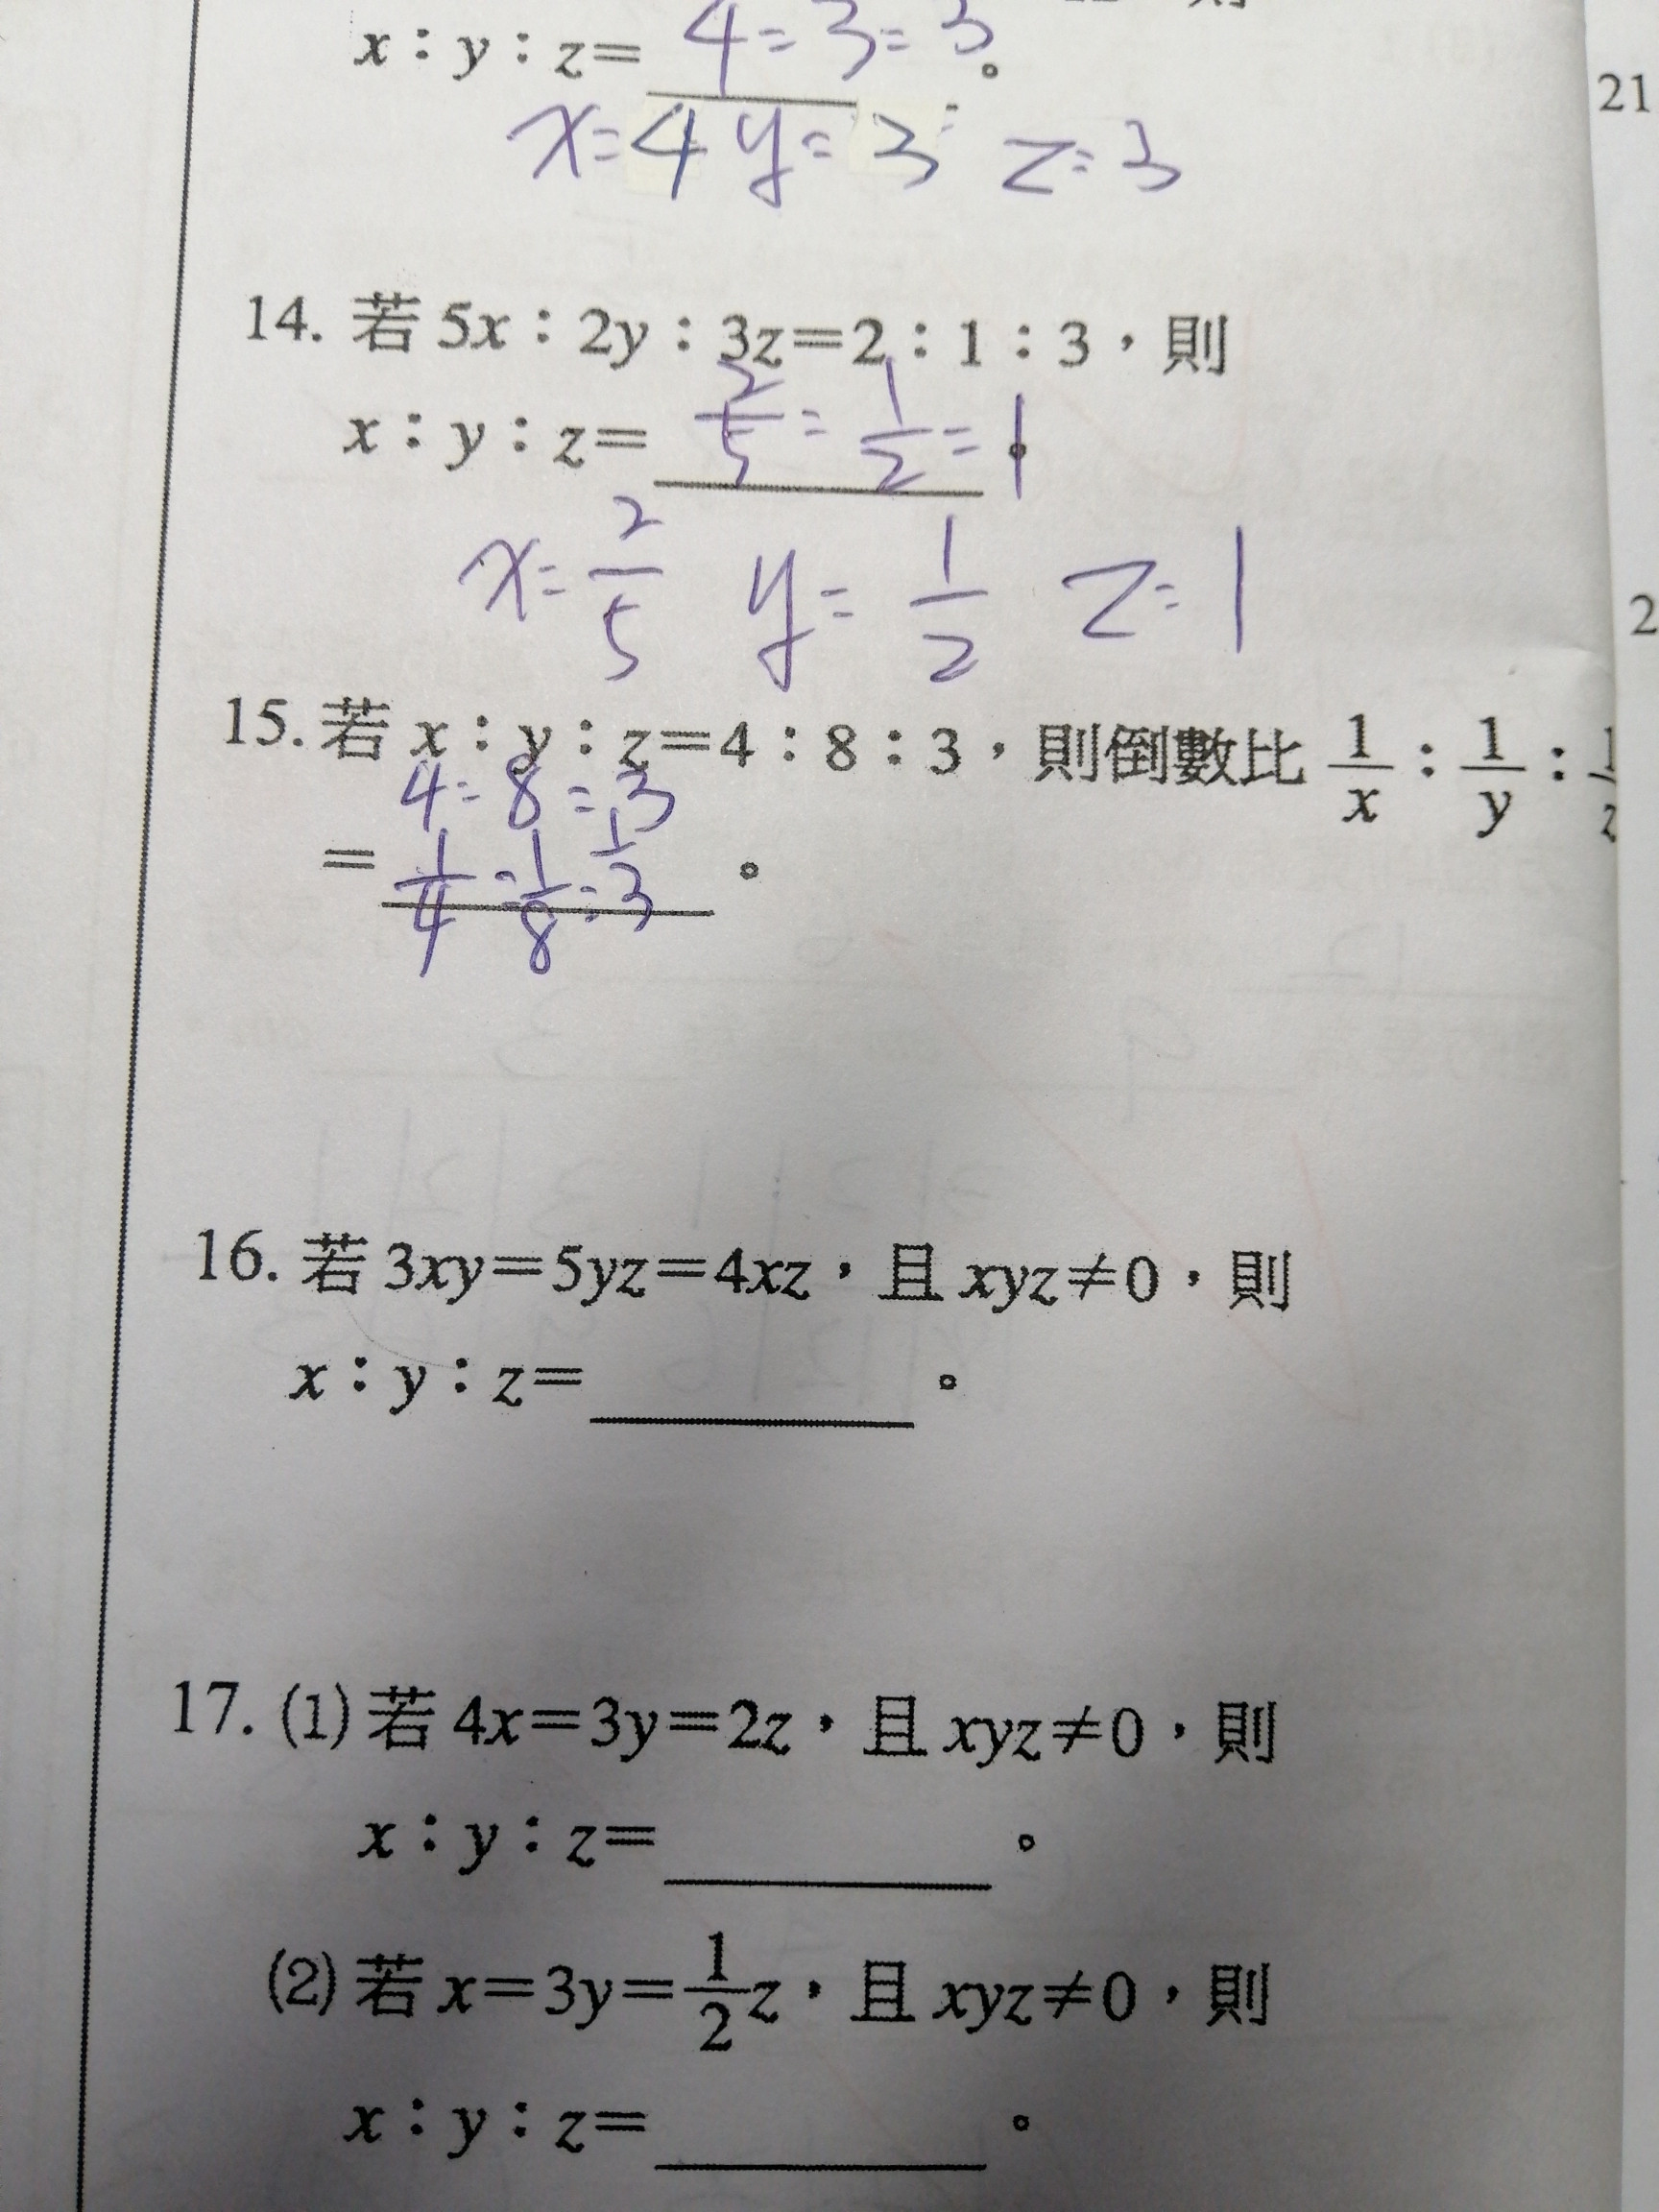 x：y：z= 4=3=3 。
x=4 y=3 z=3
21
14. 若 5x：2y：3z=2：1：3，則
x：y：z= 2/5 = 1/2 = 1 。
x= 2/5 y= 1/2 z=1
2
15. 若 x：y：z=4：8：3，則倒數比 1/x：1/y：
4=8=3
= 1/4 = 1/8 = 1/3 。
16. 若 3xy=5yz=4xz，且 xyz≠0，則
x：y：z=________。
17. (1) 若 4x=3y=2z，且 xyz≠0，則
x：y：z=________。
(2) 若 x=3y=1/2z，且 xyz≠0，則
x：y：z=________。